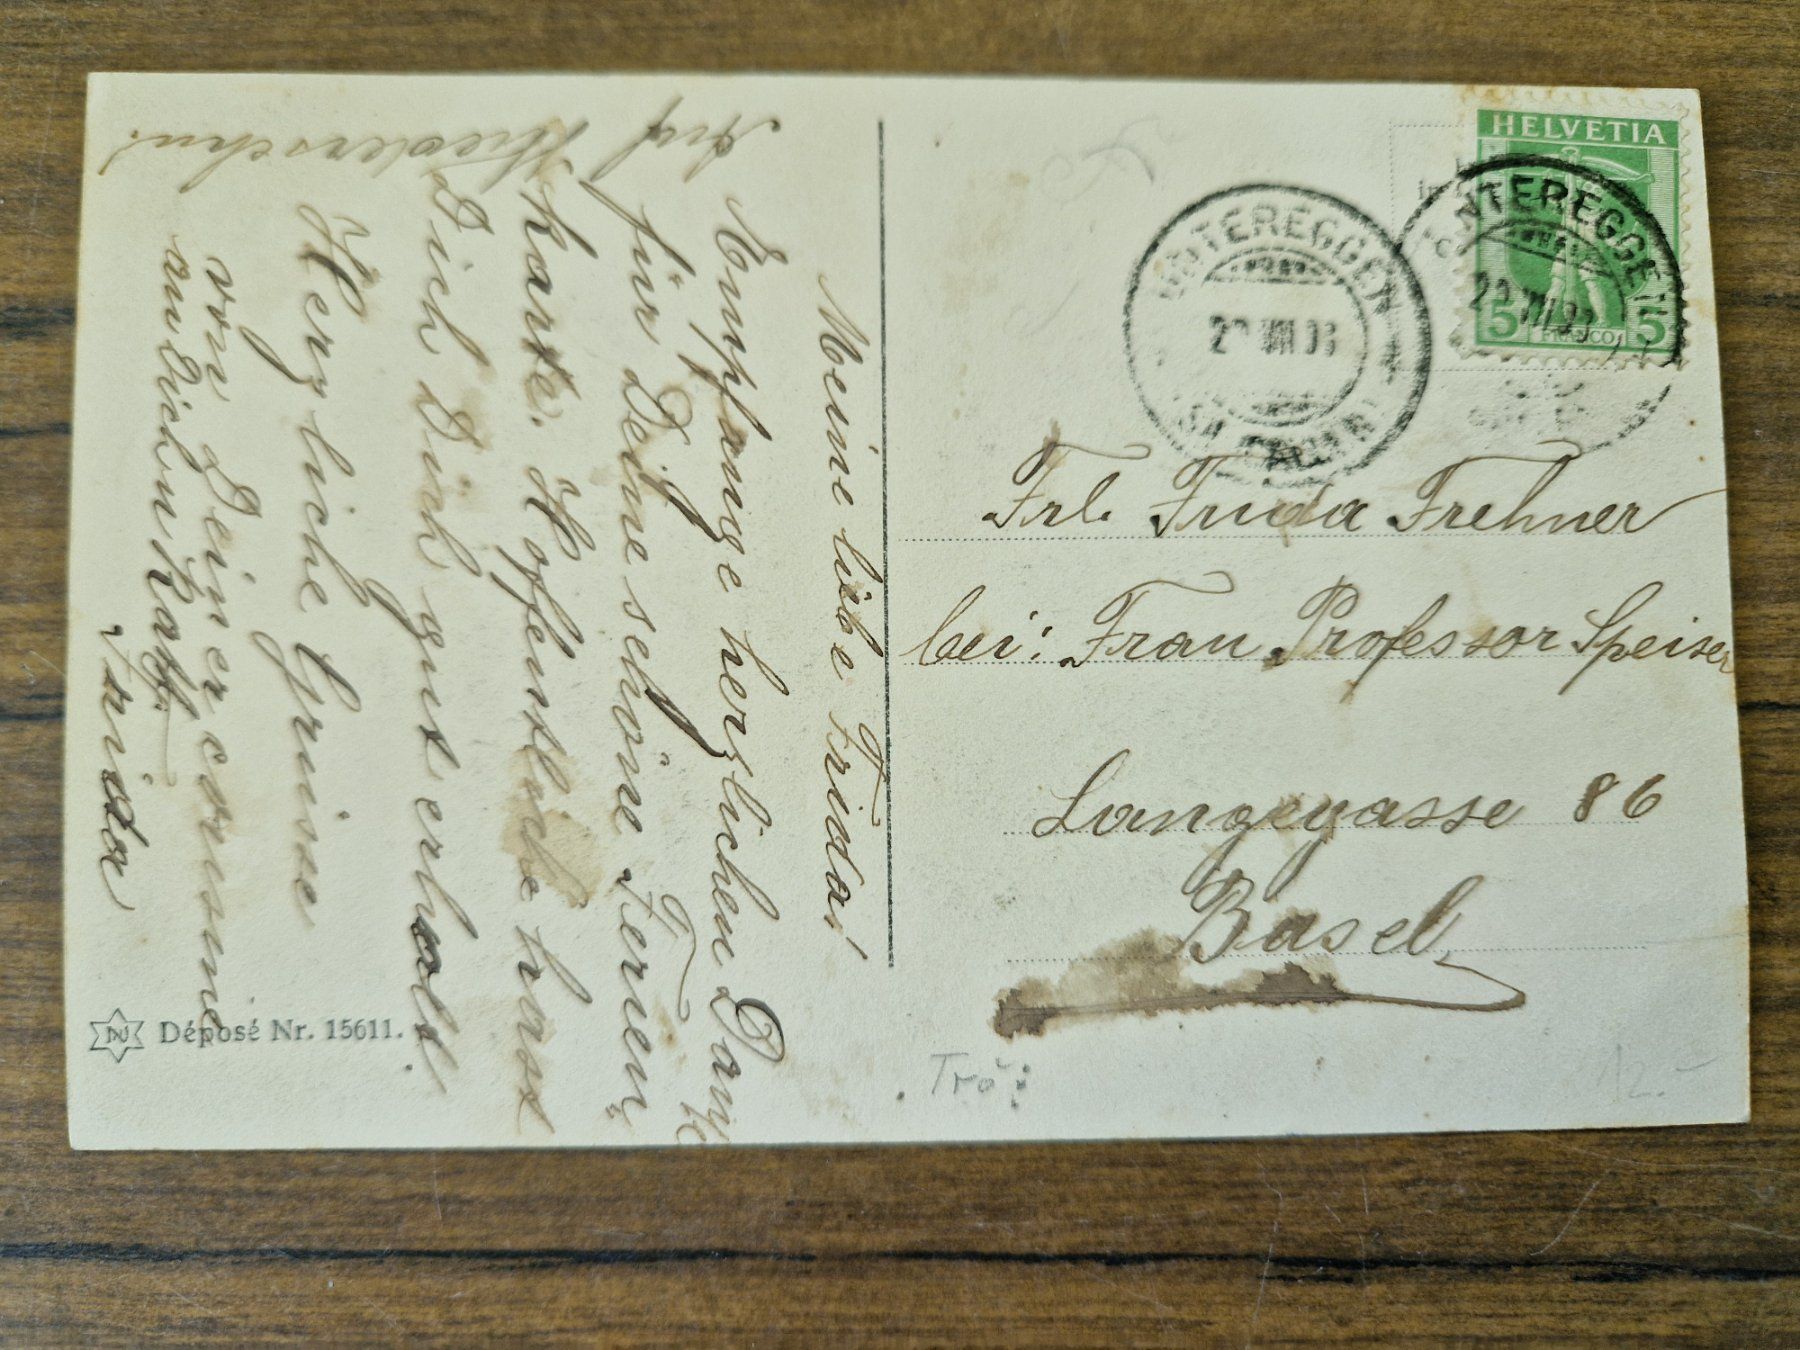 Meine liebe Frida!
Empfange herzlichen Dank
für Deine schöne Ferien
Karte. Hoffentlich hast
Dich gut erholt.
Herzliche Grüsse
von Deiner
an Dich
Frida
Auf Wiedersehn!
HELVETIA
5 FRANCO 5
UNTEREGGEN
UNTEREGGEN
Frl. Frida Frehner
bei: Frau Professor Speiser
Langegasse 86
Basel
Déposé Nr. 15611.
12.-